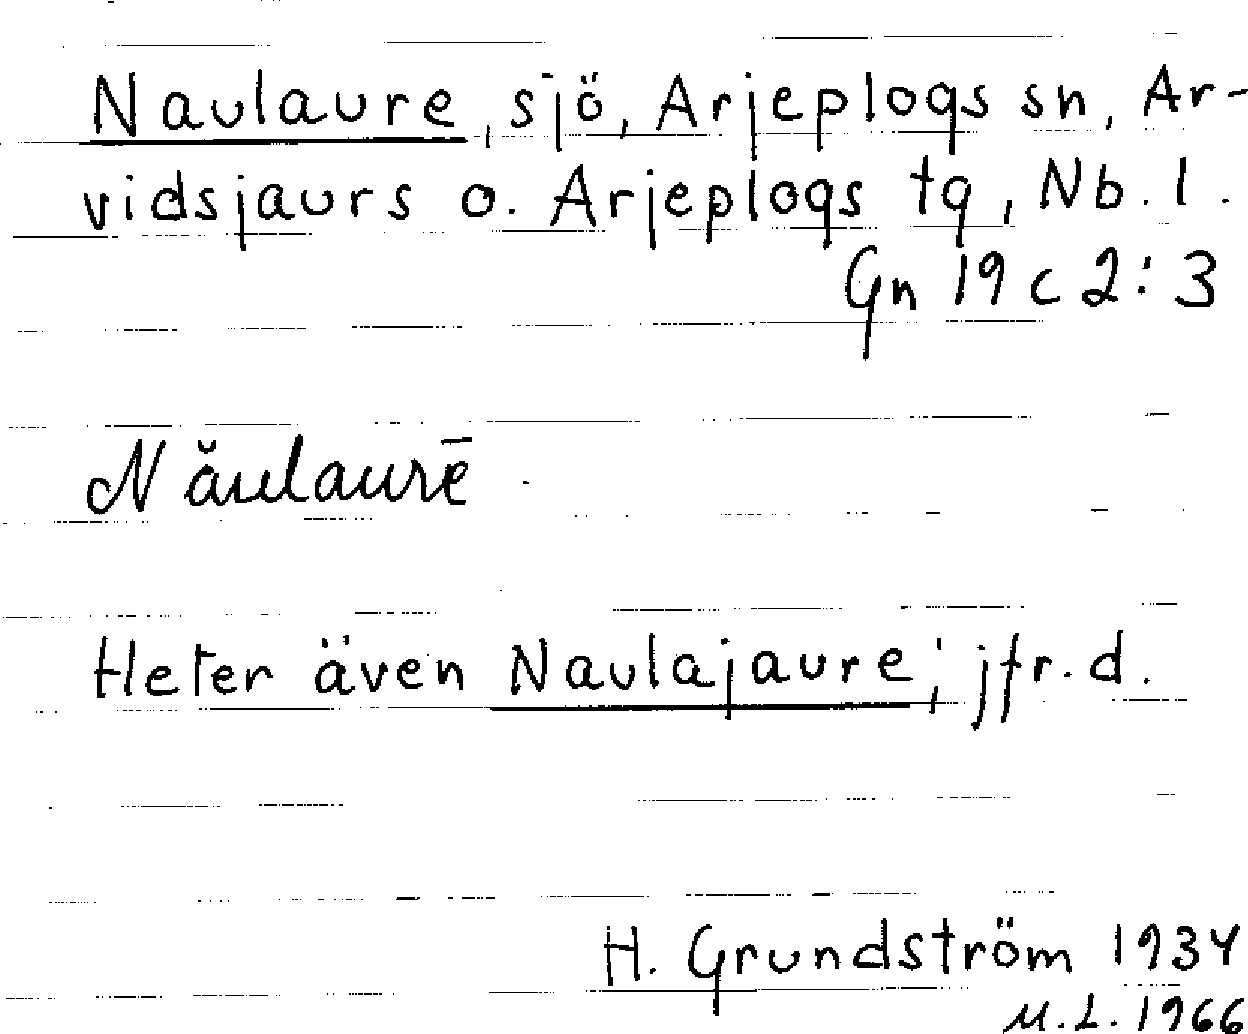 Naulaure, sjö, Arjeplogs sn, Ar-
vidsjaurs o. Arjeplogs tg, Nb. l.
Gn 19 c 2:3
Năulaurē
Heter även Naulajaure; jfr. d.
H. Grundström 1934
M.L. 1966